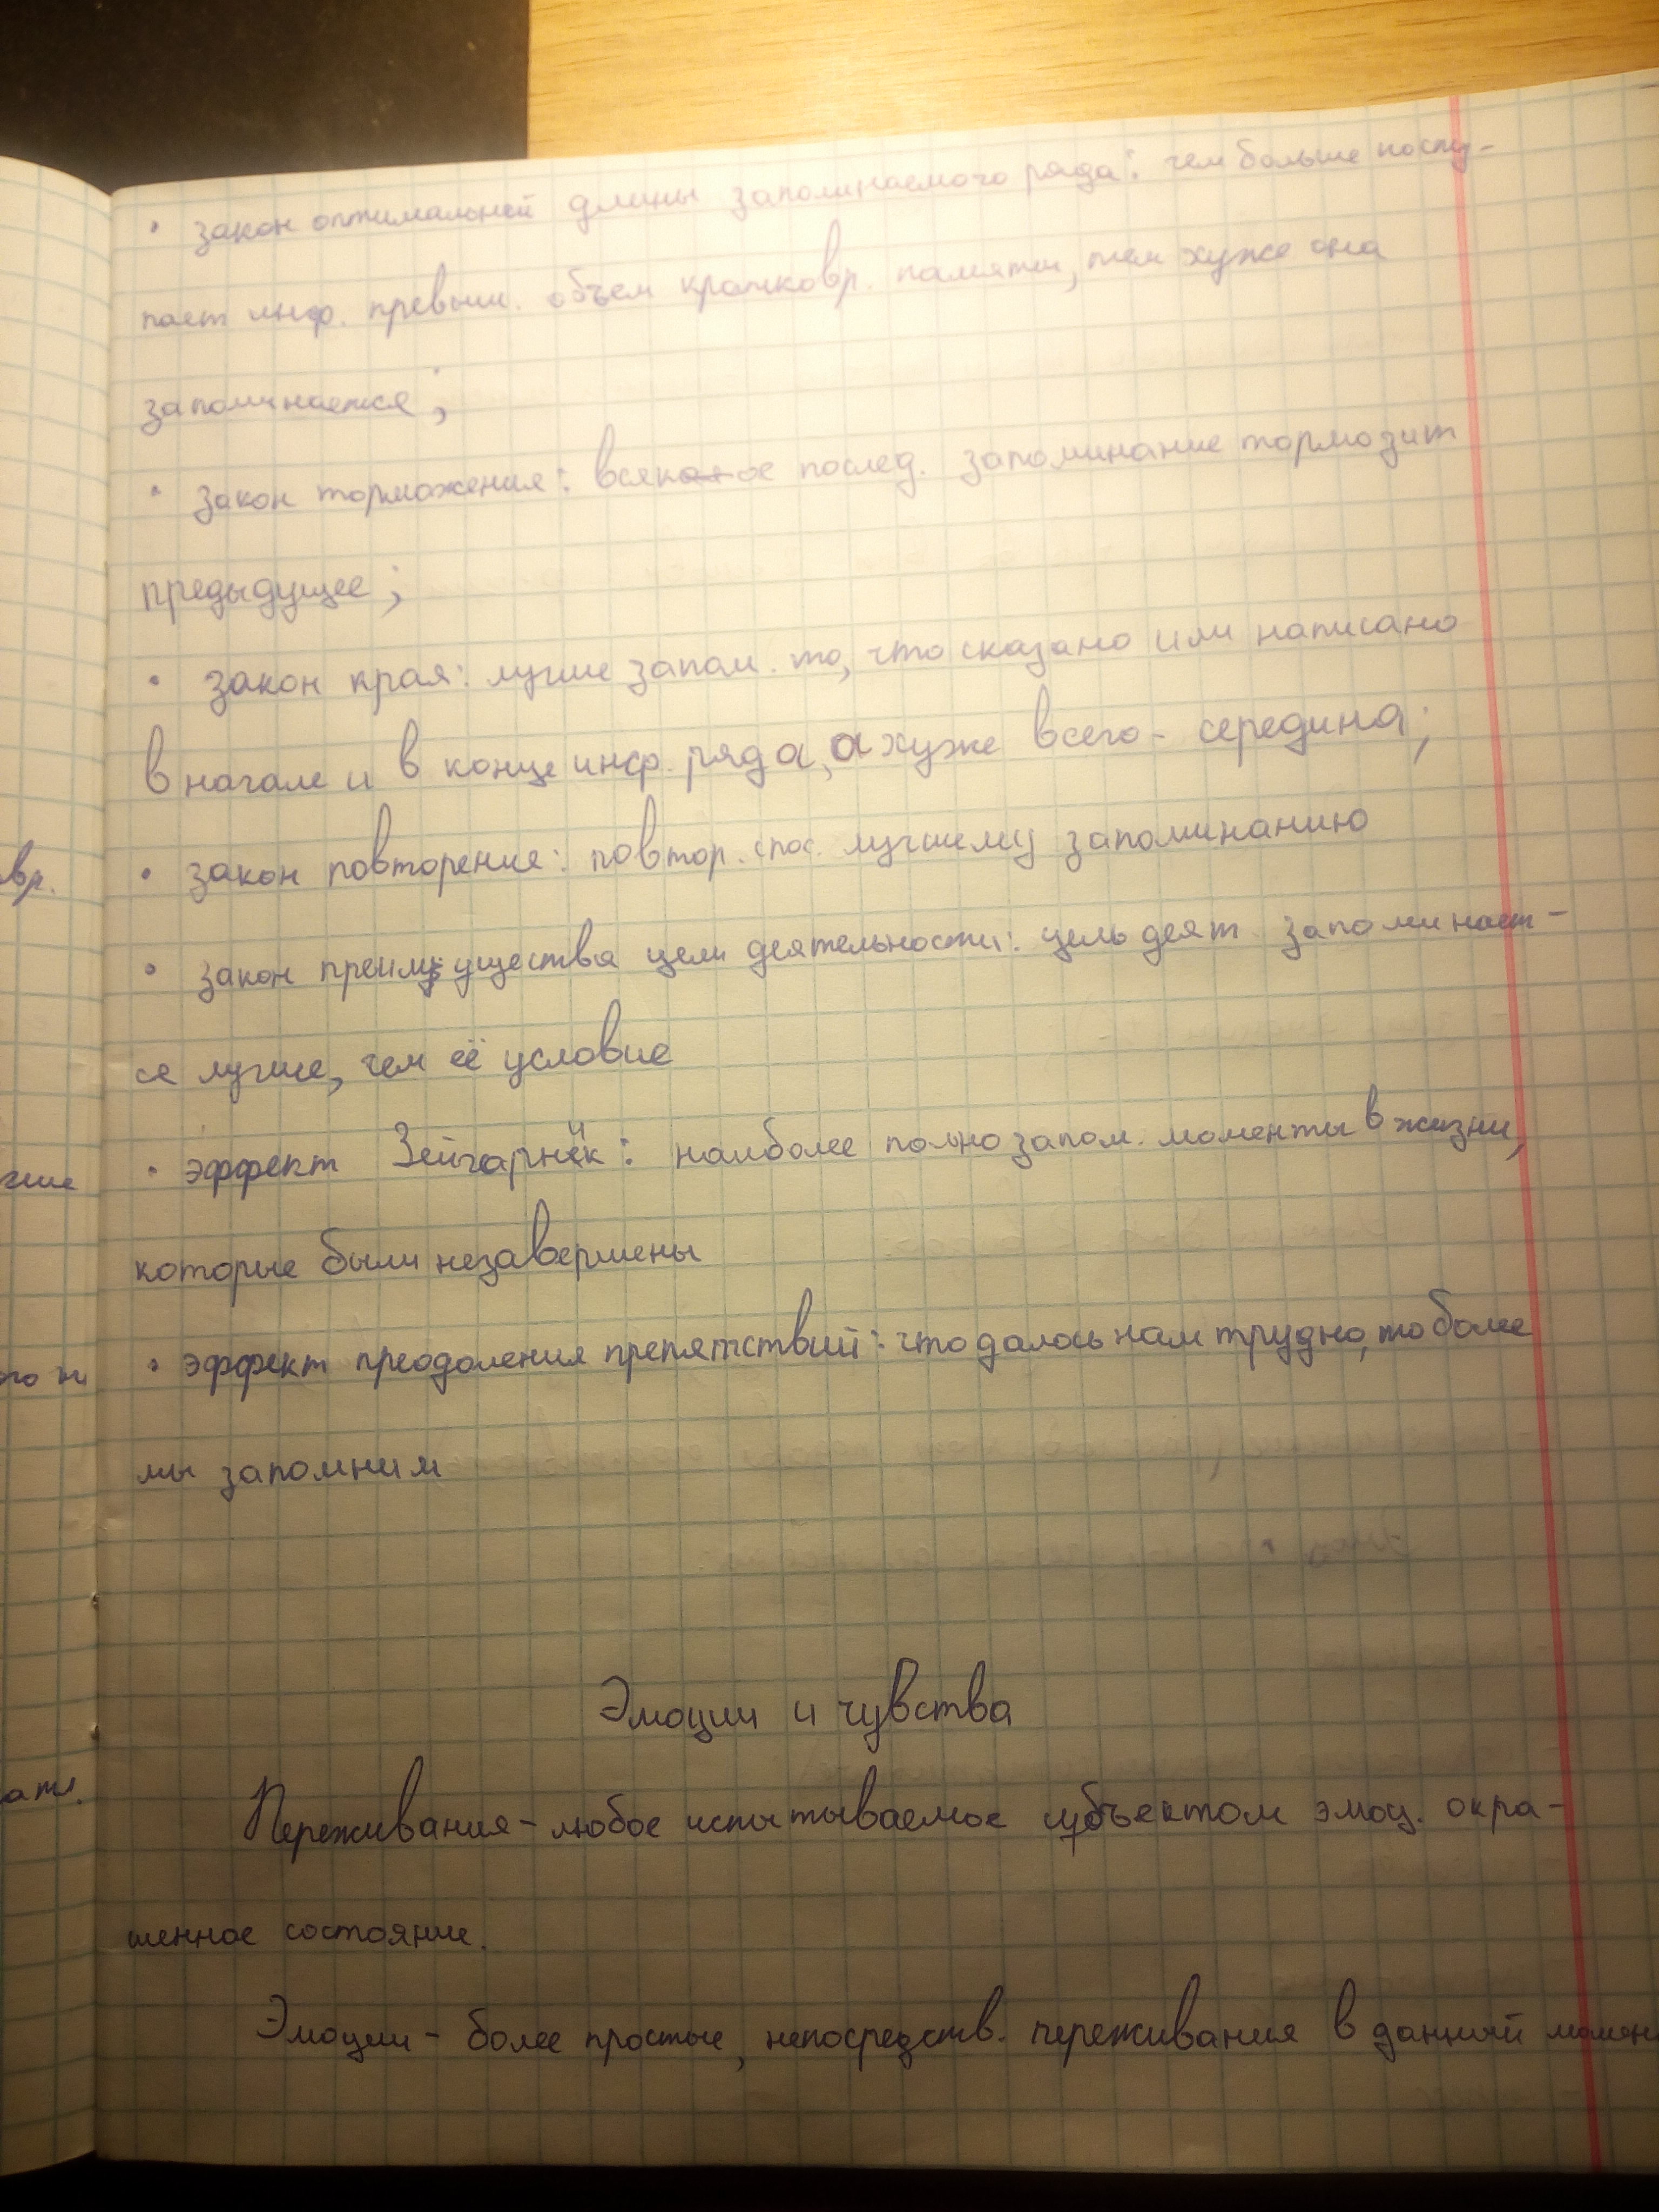 • закон оптимальной длины запоминаемого ряда: чем больше посту-
пает инф. превыш. объем кратковр. памяти, тем хуже она
запоминается;
• закон торможения: всякое послед. запоминание тормозит
предыдущее;
• закон края: лучше запом. то, что сказано или написано
в начале и в конце инф. ряда, а хуже всего - середина;
• закон повторения: повтор. спос. лучшему запоминанию
• закон преимущества цели деятельности: цель деят. запоминает-
ся лучше, чем её условие
• эффект Зейгарник: наиболее полно запом. моменты в жизни,
которые были незавершены
• эффект преодоления препятствий: что далось нам трудно, то более
мы запомним
Эмоции и чувства
Переживания - любое испытываемое субъектом эмоц. окра-
шенное состояние.
Эмоции - более простые, непосредств. переживания в данный момен
вр.